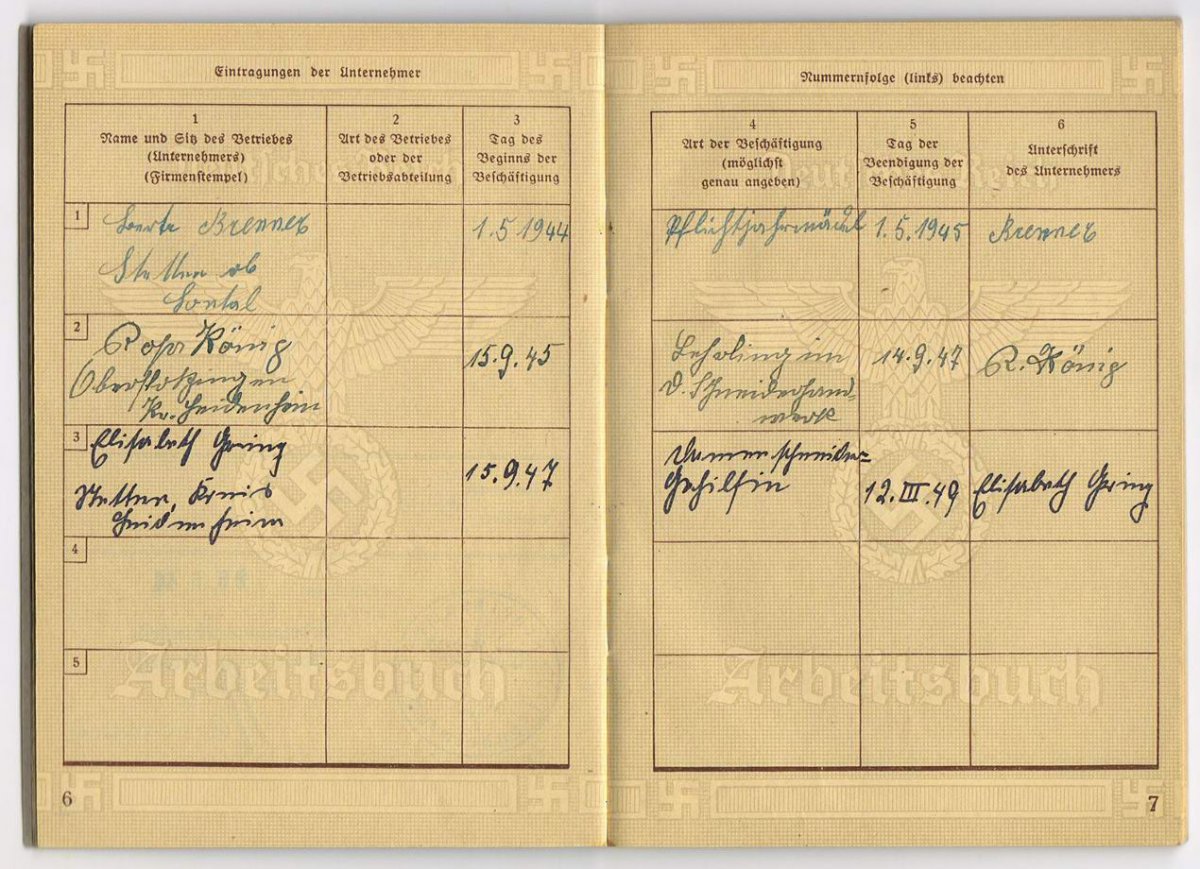 Eintragungen der Unternehmer
1
Name und Sitz des Betriebes
(Unternehmers)
(Firmenstempel)
2
Art des Betriebes
oder der
Betriebsabteilung
3
Tag des
Beginns der
Beschäftigung
1
Brenner
Stetten ob
Lontal
1.5 1944
2
Rosa König
Oberstotzingen
Kr. Heidenheim
15.9.45
3
Elisabeth Gering
Stetten, Kreis
Heidenheim
15.9.47
4
5
Arbeitsbuch
6
Nummernfolge (links) beachten
4
Art der Beschäftigung
(möglichst
genau angeben)
5
Tag der
Beendigung der
Beschäftigung
6
Unterschrift
des Unternehmers
Deutsches Reich
Pflichtjahrmädel
1.5.1945
Brenner
Lehrling im
D. Schneiderhand
werk
14.9.47
R. König
Damenschneider=
Gehilfin
12.III.49
Elisabeth Gering
Arbeitsbuch
7